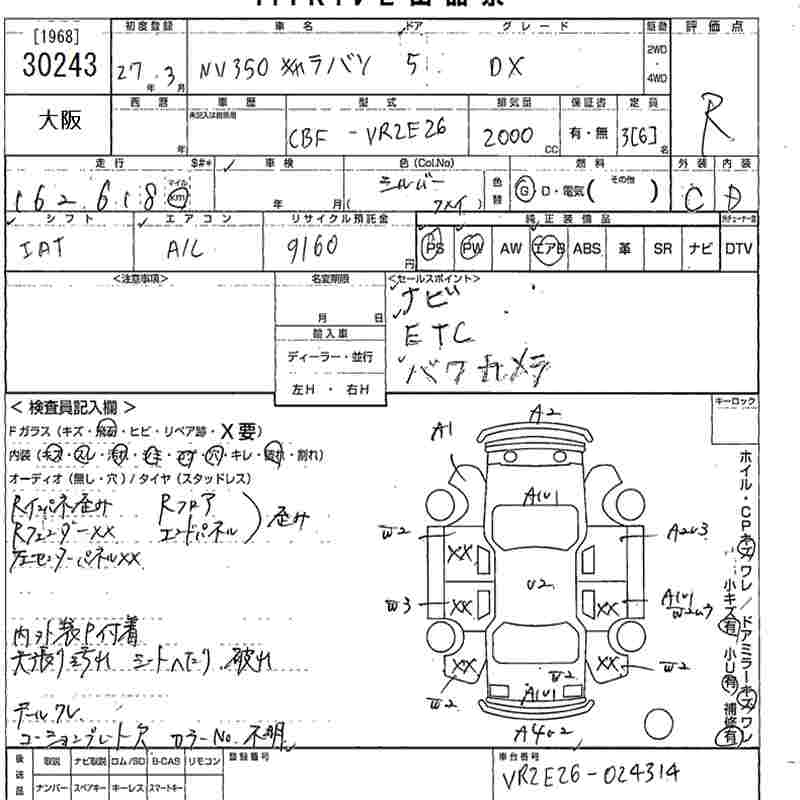 [1968]
30243
大阪
初度登録 車名 ドア グレード 駆動 評価点
27年 3月 NV350 キャラバン 5 DX 2WD ・ 4WD R
西暦 年 車歴 未記入は自家用 型式 排気量 保証書 定員
CBF - VR2E26 2000 CC 有・無 3[6]名
走行 $#* 車検 色(Col.No) 色替 燃料 外装 内装
162,618 マイル km 年 月 シルバー G D・電気( その他 ) C D
シフト エアコン リサイクル預託金 純正装備品
IAT A/C 9160円 PS PW AW エアB ABS 革 SR ナビ DTV
<注意事項> 名変期限 <セールスポイント>
月 日
輸入車
ディーラー・並行
左H ・ 右H
ナビ
ETC
バックカメラ
キーロック
< 検査員記入欄 >
Fガラス (キズ・飛石・ヒビ・リペア跡・X要)
内装 (キズ・スレ・汚れ・シミ・コゲ・穴・キレ・破れ・割れ)
オーディオ (無し・穴) / タイヤ (スタッドレス)
Rインパネ歪み Rフロア
RフェンダーXX エンドパネル 歪み
センターパネルXX
内外装P付着
天張り汚れ シートへたり、破れ
コーションプレート欠 カラーNo.不明
A2
A1
A1U1
W2 XX A2U3
U2
W3 XX XX A1U1
W2U3
XX XX W2
W2 W2
A1U1
A4U2
ホイル・CPキズ ワレ / ドアミラーキズ ワレ
小キズ有 小U有 補修有
後送品 取説 ナビ取説 ロム/SD B-CAS リモコン 登録番号 車台番号
ナンバー スペアキー キーレス スマートキー VR2E26-024314